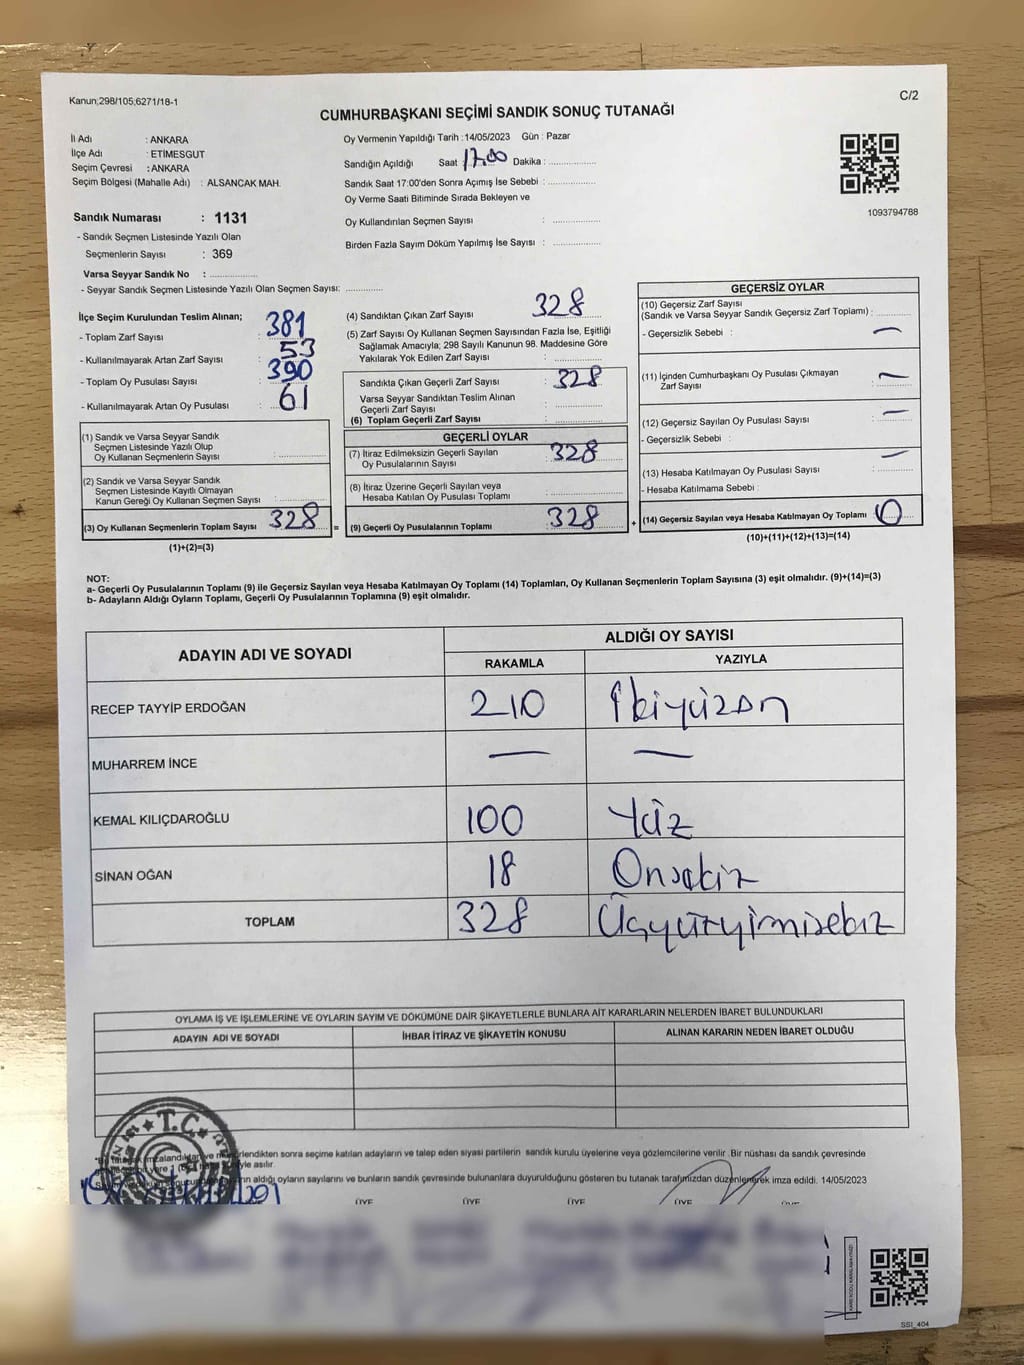 Kanun;298/105;6271/18-1
C/2
CUMHURBAŞKANI SEÇİMİ SANDIK SONUÇ TUTANAĞI
İl Adı : ANKARA
İlçe Adı : ETİMESGUT
Seçim Çevresi : ANKARA
Seçim Bölgesi (Mahalle Adı) : ALSANCAK MAH.
Sandık Numarası : 1131
- Sandık Seçmen Listesinde Yazılı Olan
Seçmenlerin Sayısı : 369
Varsa Seyyar Sandık No : ..............
- Seyyar Sandık Seçmen Listesinde Yazılı Olan Seçmen Sayısı: ..............
Oy Vermenin Yapıldığı Tarih :14/05/2023 Gün : Pazar
Sandığın Açıldığı Saat 17.00 Dakika : ..............
Sandık Saat 17:00'den Sonra Açımış İse Sebebi : ..............
Oy Verme Saati Bitiminde Sırada Bekleyen ve
Oy Kullandırılan Seçmen Sayısı : ..............
Birden Fazla Sayım Döküm Yapılmış İse Sayısı : ..............
1093794788
İlçe Seçim Kurulundan Teslim Alınan;
- Toplam Zarf Sayısı : 381
- Kullanılmayarak Artan Zarf Sayısı : 53
- Toplam Oy Pusulası Sayısı : 390
- Kullanılmayarak Artan Oy Pusulası : 61
(1) Sandık ve Varsa Seyyar Sandık
Seçmen Listesinde Yazılı Olup
Oy Kullanan Seçmenlerin Sayısı : ..............
(2) Sandık ve Varsa Seyyar Sandık
Seçmen Listesinde Kayıtlı Olmayan
Kanun Gereği Oy Kullanan Seçmen Sayısı : ..............
(3) Oy Kullanan Seçmenlerin Toplam Sayısı 328 =
(1)+(2)=(3)
(4) Sandıktan Çıkan Zarf Sayısı 328
(5) Zarf Sayısı Oy Kullanan Seçmen Sayısından Fazla İse, Eşitliği
Sağlamak Amacıyla; 298 Sayılı Kanunun 98. Maddesine Göre
Yakılarak Yok Edilen Zarf Sayısı : ..............
Sandıkta Çıkan Geçerli Zarf Sayısı : 328
Varsa Seyyar Sandıktan Teslim Alınan
Geçerli Zarf Sayısı : ..............
(6) Toplam Geçerli Zarf Sayısı : ..............
GEÇERLİ OYLAR
(7) İtiraz Edilmeksizin Geçerli Sayılan
Oy Pusulalarının Sayısı 328
(8) İtiraz Üzerine Geçerli Sayılan veya
Hesaba Katılan Oy Pusulası Toplamı : ..............
(9) Geçerli Oy Pusulalarının Toplamı 328 +
GEÇERSİZ OYLAR
(10) Geçersiz Zarf Sayısı
(Sandık ve Varsa Seyyar Sandık Geçersiz Zarf Toplamı) : ..............
- Geçersizlik Sebebi : —
(11) İçinden Cumhurbaşkanı Oy Pusulası Çıkmayan
Zarf Sayısı : —
(12) Geçersiz Sayılan Oy Pusulası Sayısı : —
- Geçersizlik Sebebi :
(13) Hesaba Katılmayan Oy Pusulası Sayısı : —
- Hesaba Katılmama Sebebi :
(14) Geçersiz Sayılan veya Hesaba Katılmayan Oy Toplamı 0
(10)+(11)+(12)+(13)=(14)
NOT:
a- Geçerli Oy Pusulalarının Toplamı (9) ile Geçersiz Sayılan veya Hesaba Katılmayan Oy Toplamı (14) Toplamları, Oy Kullanan Seçmenlerin Toplam Sayısına (3) eşit olmalıdır. (9)+(14)=(3)
b- Adayların Aldığı Oyların Toplamı, Geçerli Oy Pusulalarının Toplamına (9) eşit olmalıdır.
ADAYIN ADI VE SOYADI ALDIĞI OY SAYISI
RAKAMLA YAZIYLA
RECEP TAYYİP ERDOĞAN 210 İkiyüzon
MUHARREM İNCE — —
KEMAL KILIÇDAROĞLU 100 Yüz
SİNAN OĞAN 18 Onsekiz
TOPLAM 328 Üçyüzyirmisekiz
OYLAMA İŞ VE İŞLEMLERİNE VE OYLARIN SAYIM VE DÖKÜMÜNE DAİR ŞİKAYETLERLE BUNLARA AİT KARARLARIN NELERDEN İBARET BULUNDUKLARI
ADAYIN ADI VE SOYADI İHBAR İTİRAZ VE ŞİKAYETİN KONUSU ALINAN KARARIN NEDEN İBARET OLDUĞU
T.C.
sonra seçime katılan adayların ve talep eden siyasi partilerin sandık kurulu üyelerine veya gözlemcilerine verilir .Bir nüshası da sandık çevresinde
asılır.
aldığı oyların sayılarını ve bunların sandık çevresinde bulunanlara duyurulduğunu gösteren bu tutanak tarafımızdan düzenlenerek imza edildi. 14/05/2023
ÜYE ÜYE ÜYE ÜYE
SSI_404